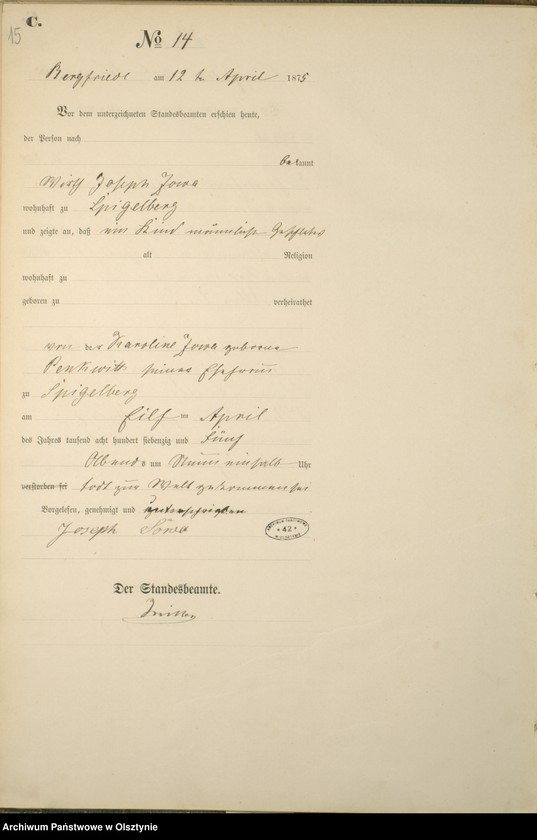 15
C.
No 14
Bergfriede am 12 ten April 1875
Vor dem unterzeichneten Standesbeamten erschien heute,
der Person nach
bekannt
Wirth Joseph
wohnhaft zu Spigelberg
und zeigte an, daß ein Kind männlichen Geschlechts
alt Religion
wohnhaft zu
geboren zu verheirathet
von der Karoline geborne
seiner Ehefrau
zu Spigelberg
am Eilf ten April
des Jahres tausend acht hundert siebenzig und Fünf
Abends um Neun einhalb Uhr
verstorben sei todt zur Welt gekommen sei
Vorgelesen, genehmigt und unterschrieben
Joseph
42
Der Standesbeamte.
Archiwum Państwowe w Olsztynie